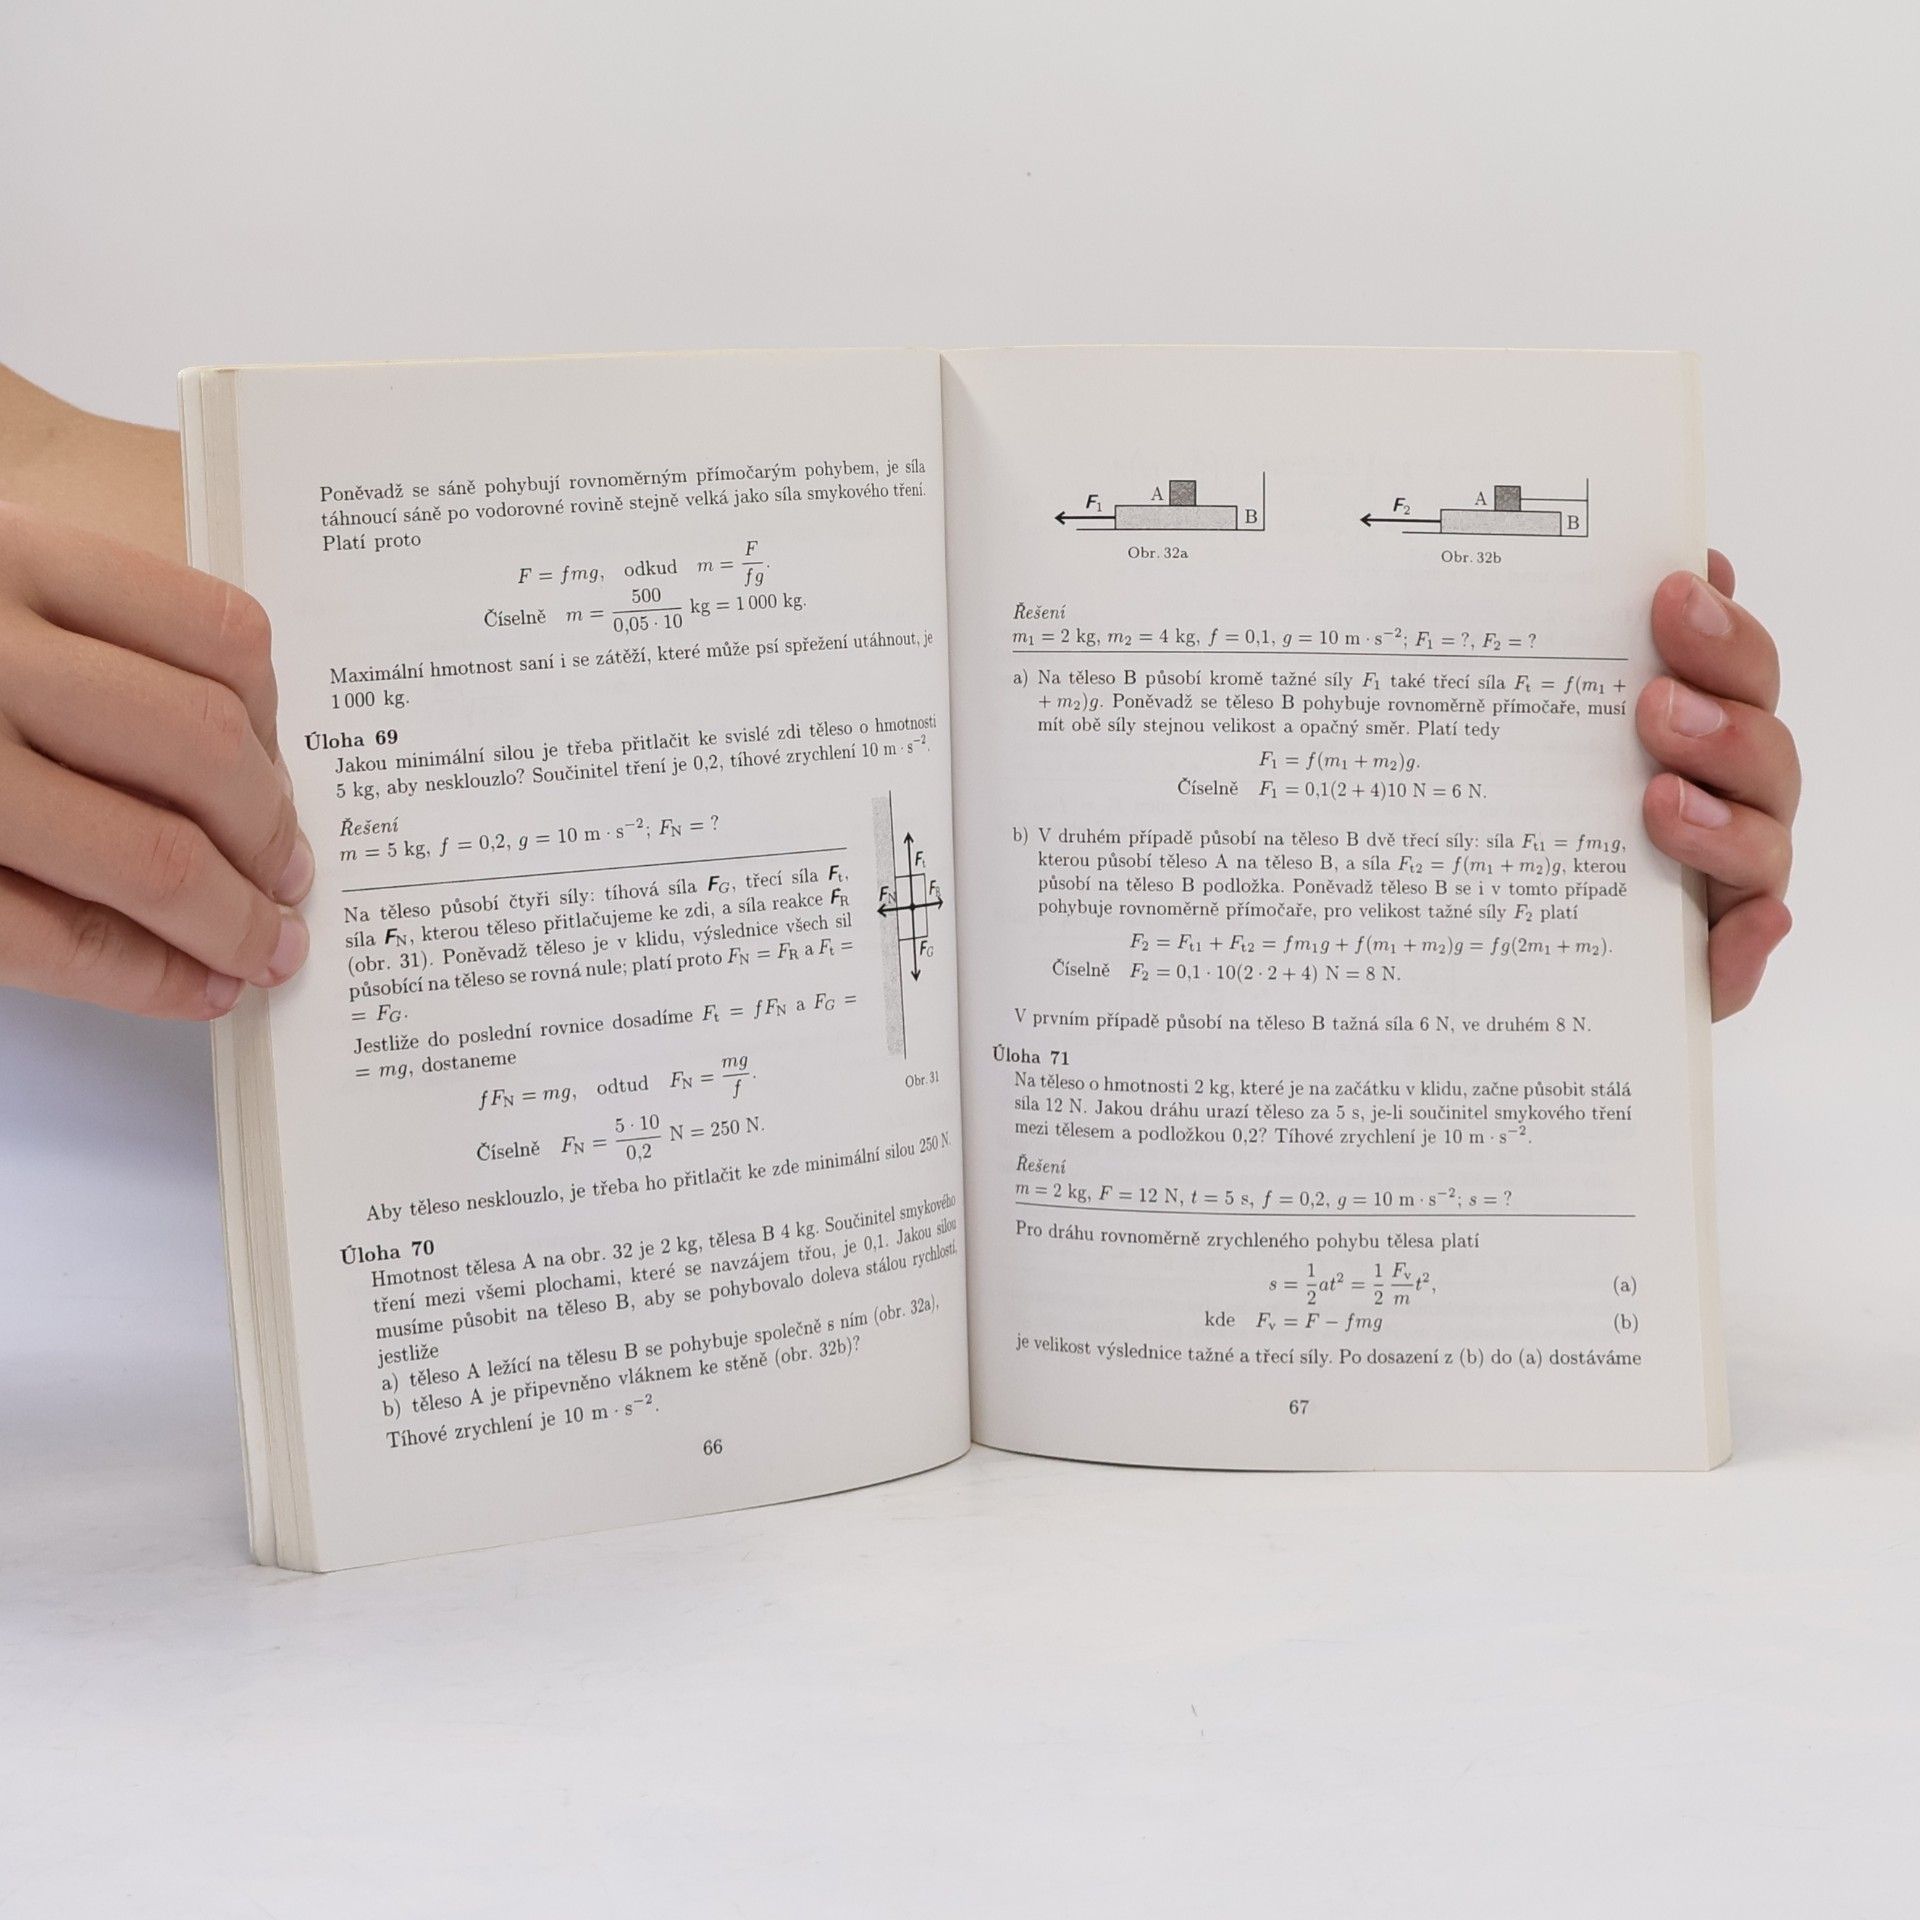 Poněvadž se sáně pohybují rovnoměrným přímočarým pohybem, je síla
táhnoucí sáně po vodorovné rovině stejně velká jako síla smykového tření.
Platí proto
F = fmg, odkud m = F/fg.
Číselně m = 500/(0,05 · 10) kg = 1 000 kg.
Maximální hmotnost saní i se zátěží, které může psí spřežení utáhnout, je
1 000 kg.
Úloha 69
Jakou minimální silou je třeba přitlačit ke svislé zdi těleso o hmotnosti
5 kg, aby nesklouzlo? Součinitel tření je 0,2, tíhové zrychlení 10 m · s⁻².
Řešení
m = 5 kg, f = 0,2, g = 10 m · s⁻²; F_N = ?
Na těleso působí čtyři síly: tíhová síla F_G, třecí síla F_t,
síla F_N, kterou těleso přitlačujeme ke zdi, a síla reakce F_R
(obr. 31). Poněvadž těleso je v klidu, výslednice všech sil
působící na těleso se rovná nule; platí proto F_N = F_R a F_t =
= F_G.
Jestliže do poslední rovnice dosadíme F_t = fF_N a F_G =
= mg, dostaneme
fF_N = mg, odtud F_N = mg/f.
Číselně F_N = (5 · 10)/0,2 N = 250 N.
F_t
F_N
F_R
F_G
Obr. 31
Aby těleso nesklouzlo, je třeba ho přitlačit ke zde minimální silou 250 N.
Úloha 70
Hmotnost tělesa A na obr. 32 je 2 kg, tělesa B 4 kg. Součinitel smykového
tření mezi všemi plochami, které se navzájem třou, je 0,1. Jakou silou
musíme působit na těleso B, aby se pohybovalo doleva stálou rychlostí,
jestliže
a) těleso A ležící na tělesu B se pohybuje společně s ním (obr. 32a),
b) těleso A je připevněno vláknem ke stěně (obr. 32b)?
Tíhové zrychlení je 10 m · s⁻².
66
F₁ A B
Obr. 32a
F₂ A B
Obr. 32b
Řešení
m₁ = 2 kg, m₂ = 4 kg, f = 0,1, g = 10 m · s⁻²; F₁ = ?, F₂ = ?
a) Na těleso B působí kromě tažné síly F₁ také třecí síla F_t = f(m₁ +
+ m₂)g. Poněvadž se těleso B pohybuje rovnoměrně přímočaře, musí
mít obě síly stejnou velikost a opačný směr. Platí tedy
F₁ = f(m₁ + m₂)g.
Číselně F₁ = 0,1(2 + 4)10 N = 6 N.
b) V druhém případě působí na těleso B dvě třecí síly: síla F_t1 = fm₁g,
kterou působí těleso A na těleso B, a síla F_t2 = f(m₁ + m₂)g, kterou
působí na těleso B podložka. Poněvadž těleso B se i v tomto případě
pohybuje rovnoměrně přímočaře, pro velikost tažné síly F₂ platí
F₂ = F_t1 + F_t2 = fm₁g + f(m₁ + m₂)g = fg(2m₁ + m₂).
Číselně F₂ = 0,1 · 10(2 · 2 + 4) N = 8 N.
V prvním případě působí na těleso B tažná síla 6 N, ve druhém 8 N.
Úloha 71
Na těleso o hmotnosti 2 kg, které je na začátku v klidu, začne působit stálá
síla 12 N. Jakou dráhu urazí těleso za 5 s, je-li součinitel smykového tření
mezi tělesem a podložkou 0,2? Tíhové zrychlení je 10 m · s⁻².
Řešení
m = 2 kg, F = 12 N, t = 5 s, f = 0,2, g = 10 m · s⁻²; s = ?
Pro dráhu rovnoměrně zrychleného pohybu tělesa platí
s = 1/2 at² = 1/2 F_v/m t², (a)
kde F_v = F − fmg (b)
je velikost výslednice tažné a třecí síly. Po dosazení z (b) do (a) dostáváme
67